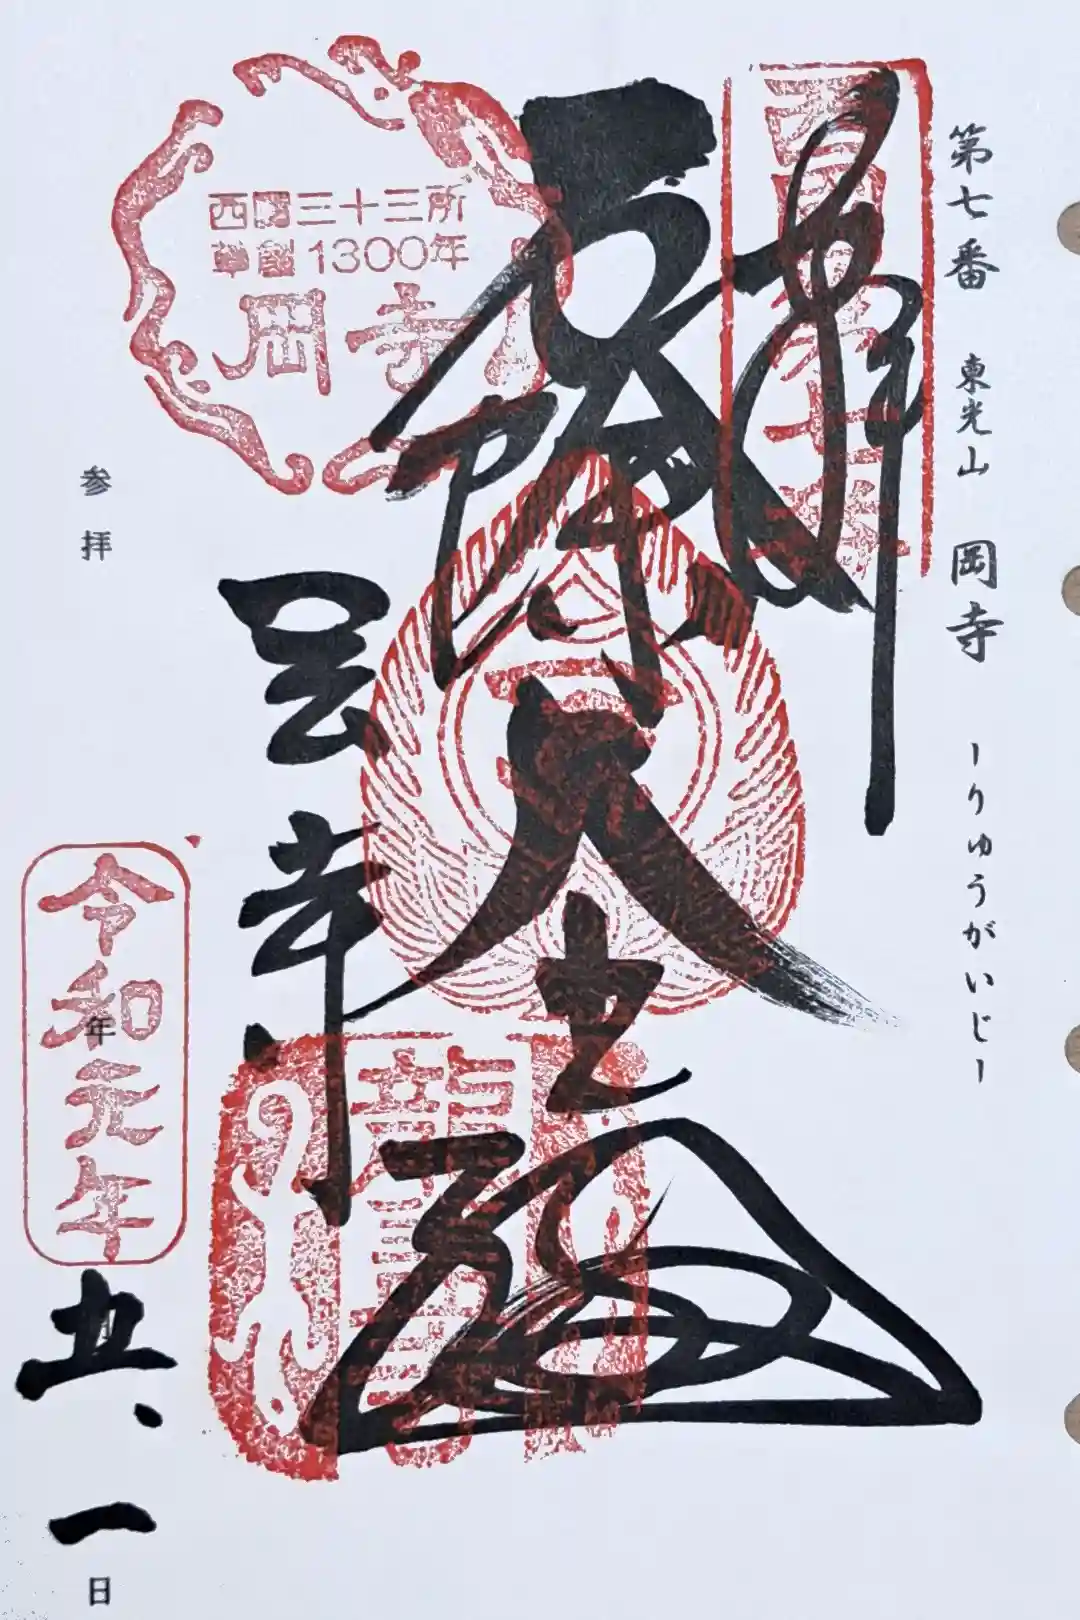 第七番 東光山 岡寺 ーりゅうがいじー
奉拝
西國三十三所
草創1300年
岡寺
岡寺
龍蓋寺
参拝
令和元年
年
五、一
日